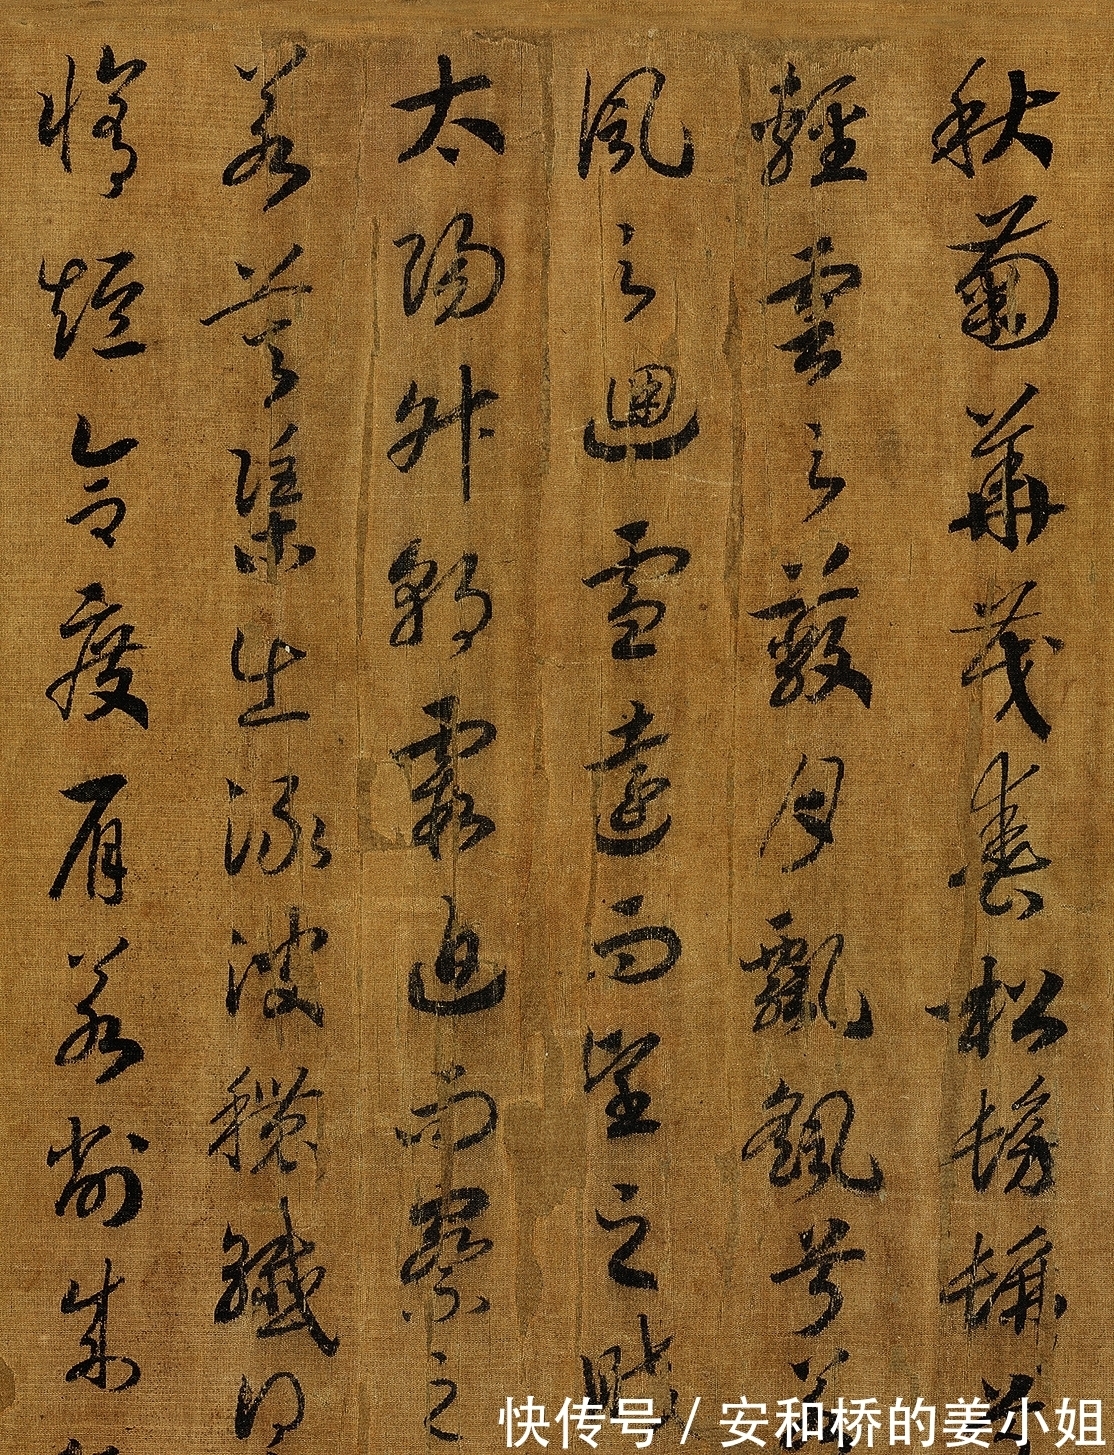 秋菊華茂春松髣髴
輕雲之蔽月飄飖兮若
風之迴雪遠而望之皎
太陽升朝霞迫而察之
若芙蕖出淥波穠纖得
脩短合度肩若削成
快传号 / 安和桥的姜小姐